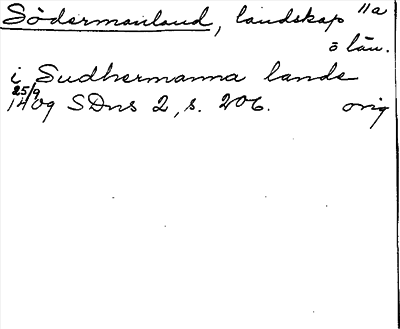 Södermanland, landskap 11a
ö län.
i Sudhermanna lande
25/9
1409 SDns 2, s. 206. orig